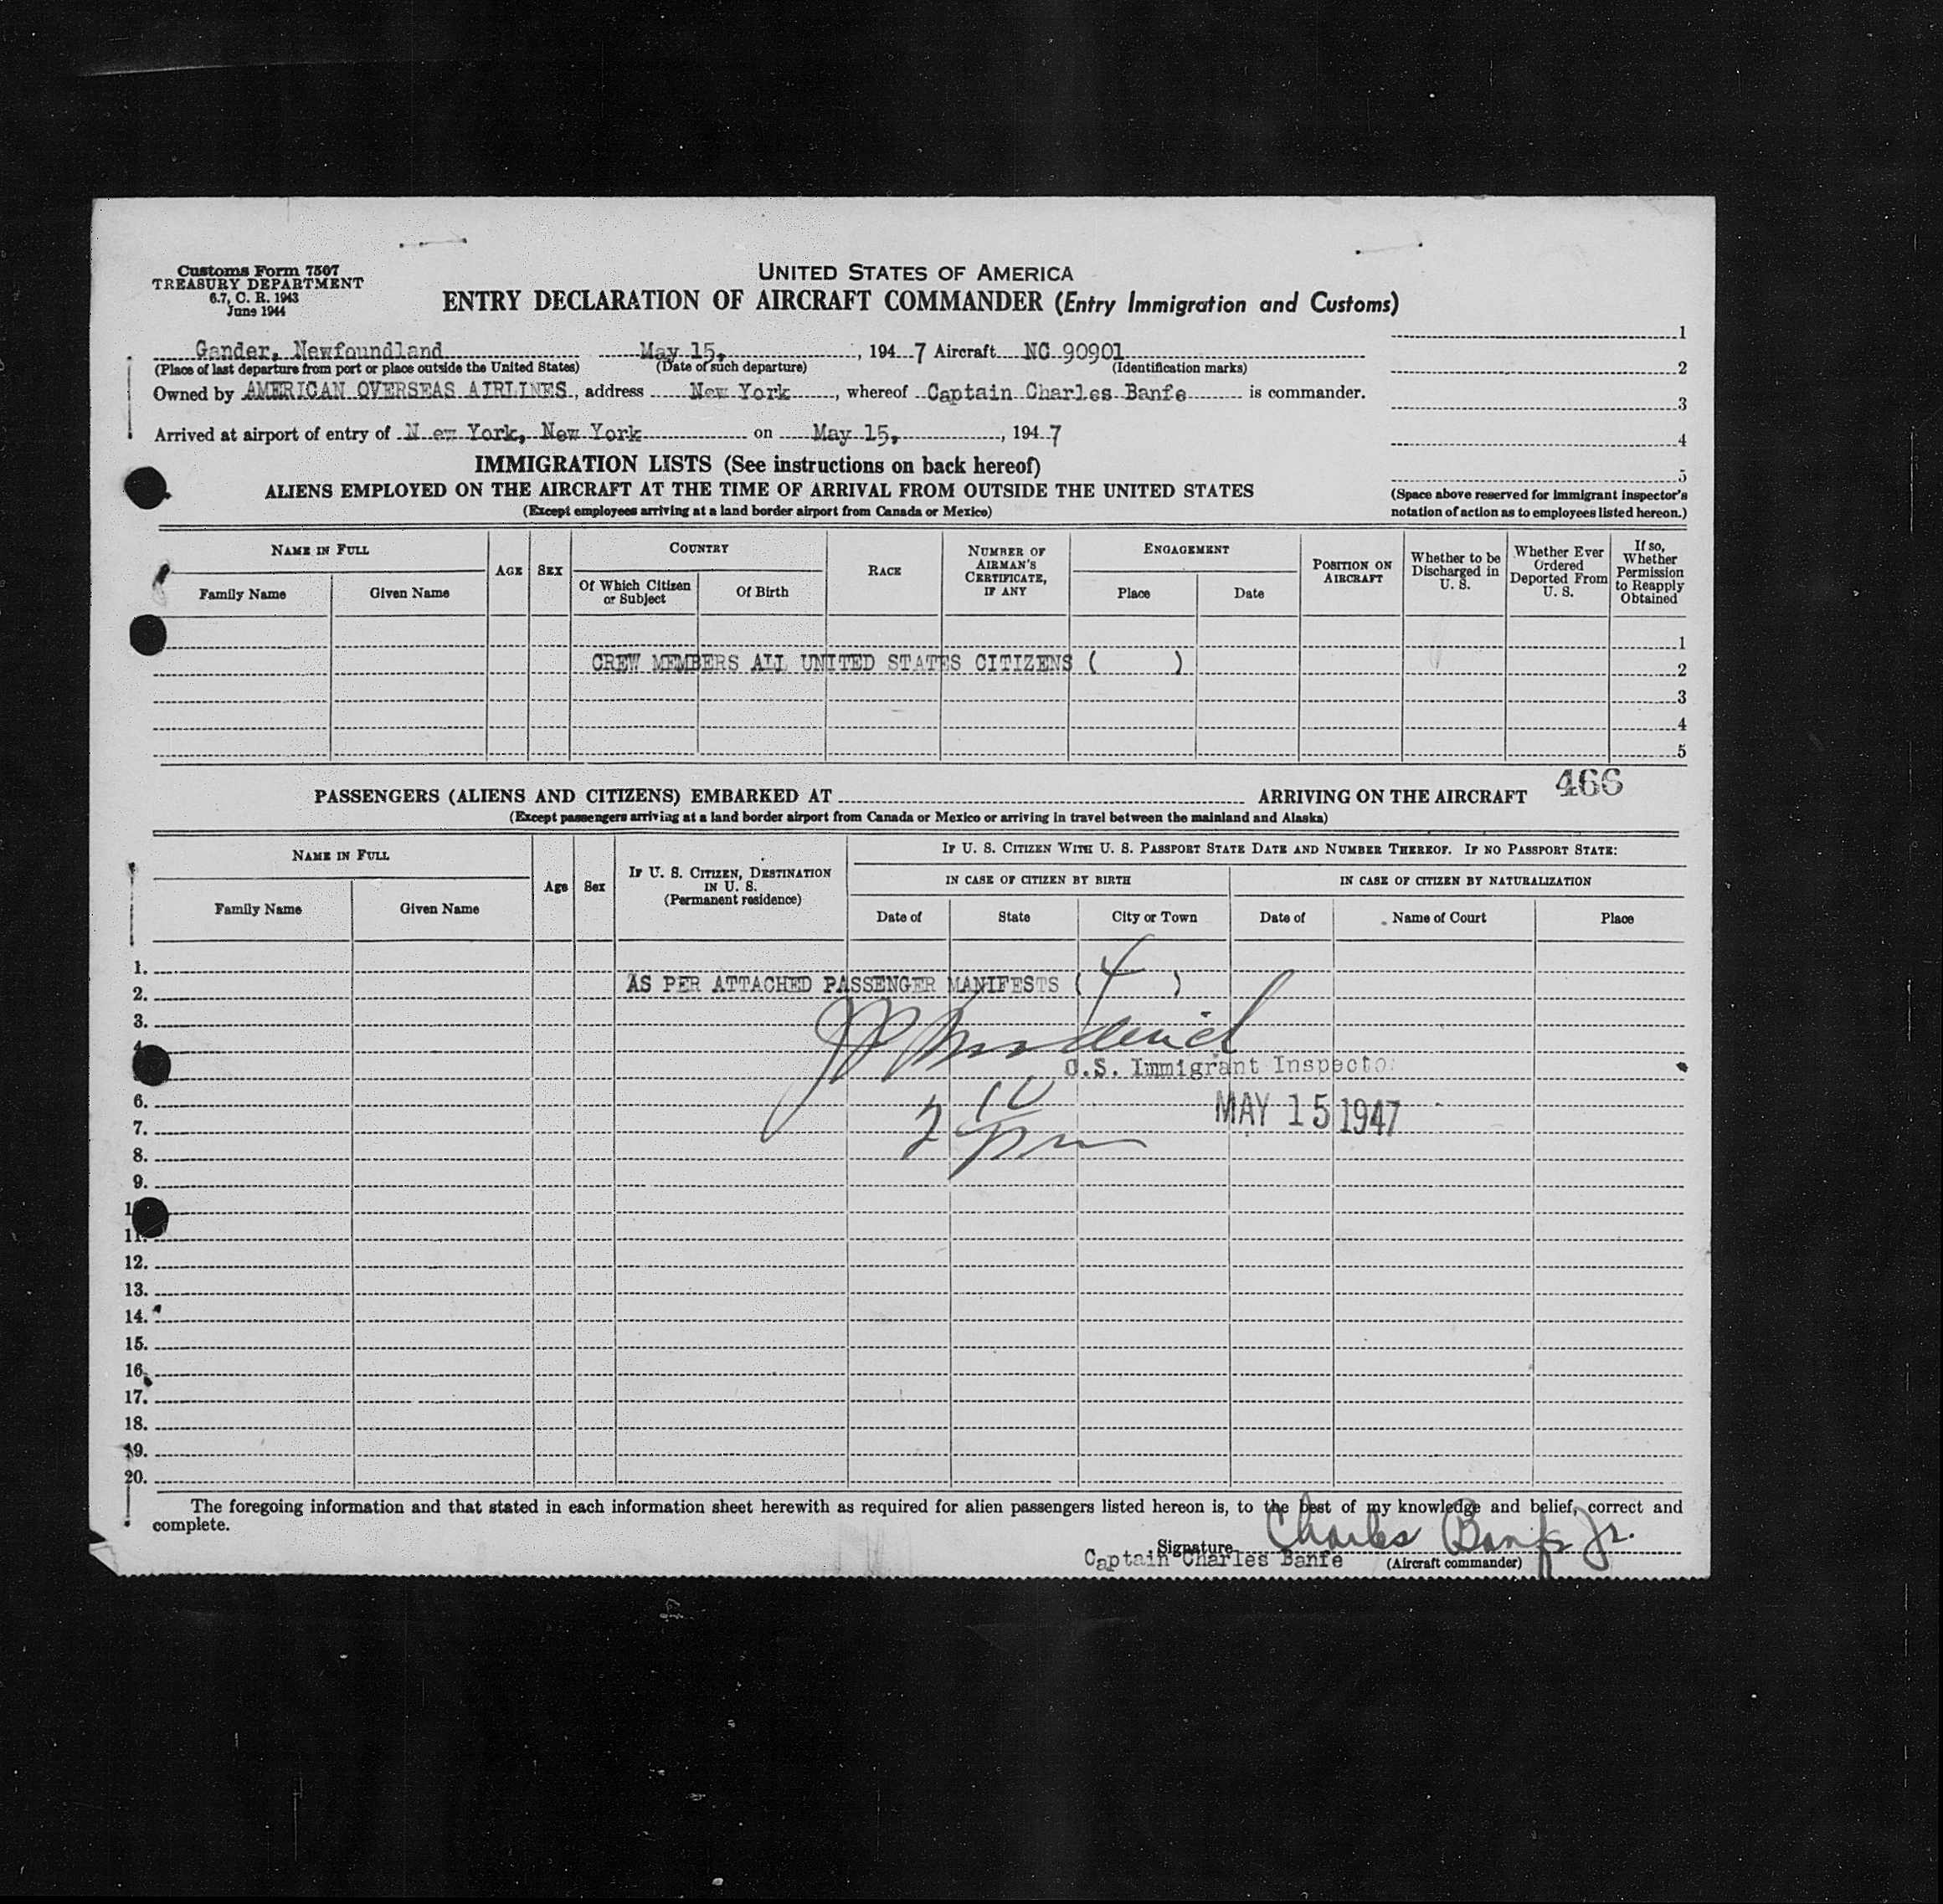 Customs Form 7507
TREASURY DEPARTMENT
6.7, C. R. 1943
June 1944
UNITED STATES OF AMERICA
ENTRY DECLARATION OF AIRCRAFT COMMANDER (Entry Immigration and Customs)
Gander, Newfoundland May 15, , 1947 Aircraft NC 90901
(Place of last departure from port or place outside the United States) (Date of such departure) (Identification marks)
Owned by AMERICAN OVERSEAS AIRLINES, address New York, whereof Captain Charles Banfe is commander.
Arrived at airport of entry of N ew York, New York on May 15, , 1947
1
2
3
4
5
(Space above reserved for immigrant inspector's
notation of action as to employees listed hereon.)
IMMIGRATION LISTS (See instructions on back hereof)
ALIENS EMPLOYED ON THE AIRCRAFT AT THE TIME OF ARRIVAL FROM OUTSIDE THE UNITED STATES
(Except employees arriving at a land border airport from Canada or Mexico)
NAME IN FULL
Family Name Given Name
AGE SEX
COUNTRY
Of Which Citizen or Subject Of Birth
RACE
NUMBER OF AIRMAN'S CERTIFICATE, IF ANY
ENGAGEMENT
Place Date
POSITION ON AIRCRAFT
Whether to be Discharged in U. S.
Whether Ever Ordered Deported From U. S.
If so, Whether Permission to Reapply Obtained
1
CREW MEMBERS ALL UNITED STATES CITIZENS ( ) 2
3
4
5
466
PASSENGERS (ALIENS AND CITIZENS) EMBARKED AT ARRIVING ON THE AIRCRAFT
(Except passengers arriving at a land border airport from Canada or Mexico or arriving in travel between the mainland and Alaska)
NAME IN FULL
Family Name Given Name
Age Sex
IF U. S. CITIZEN, DESTINATION IN U. S.
(Permanent residence)
IF U. S. CITIZEN WITH U. S. PASSPORT STATE DATE AND NUMBER THEREOF. IF NO PASSPORT STATE:
IN CASE OF CITIZEN BY BIRTH IN CASE OF CITIZEN BY NATURALIZATION
Date of State City or Town Date of Name of Court Place
1.
2. AS PER ATTACHED PASSENGER MANIFESTS ( 4 )
3.
4.
U.S. Immigrant Inspector
6. 2 10 pm MAY 15 1947
7.
8.
9.
11.
12.
13.
14.
15.
16.
17.
18.
19.
20.
The foregoing information and that stated in each information sheet herewith as required for alien passengers listed hereon is, to the best of my knowledge and belief, correct and
complete.
Signature Charles Banfe Jr.
Captain Charles Banfe (Aircraft commander)